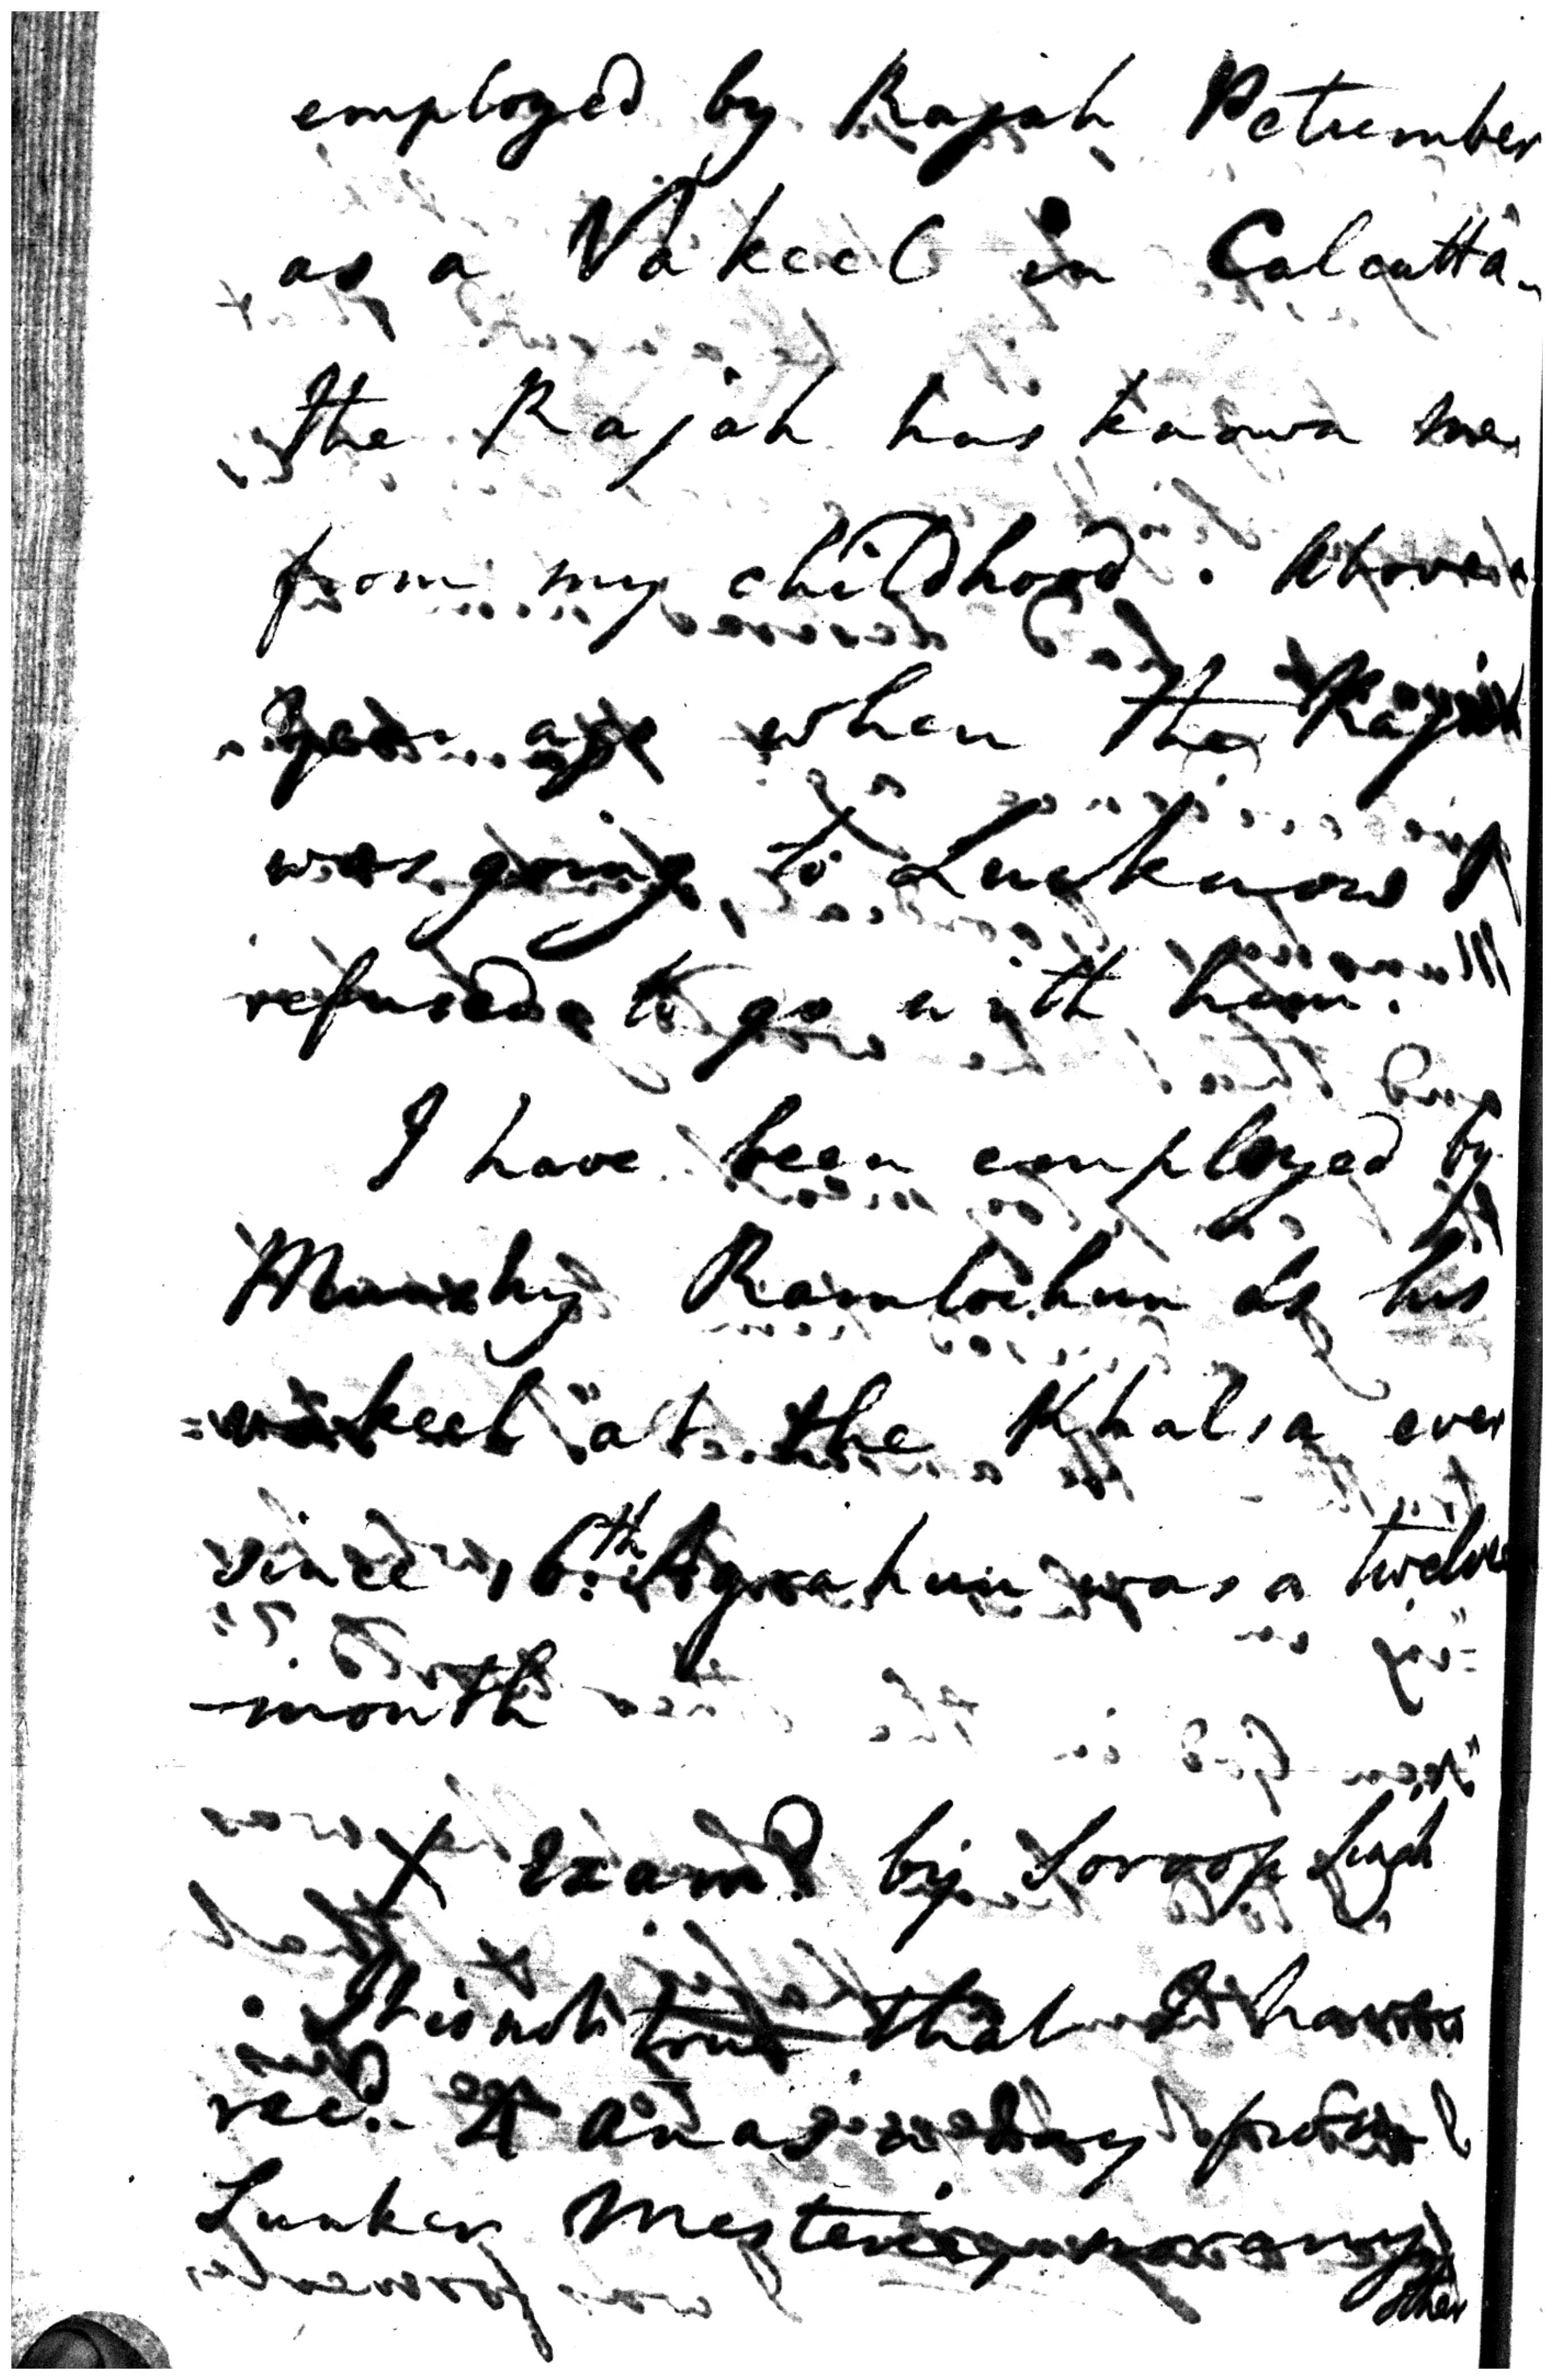 employed by Rajah Petrumber
as a Vakeel in Calcutta.
The Rajah has known me
from my childhood. Above a
Year ago when the Rajah
was going to Lucknow I
refused to go with him.
I have been employed by
Munshy Ramlochun as his
=vakeel at the Khalsa ever
since 16th Agrahun was a twelve
month
X Examd by Soroop Singh
It is not true that I have
recd 4 Anas a day from
Sunker Mestery or any
other